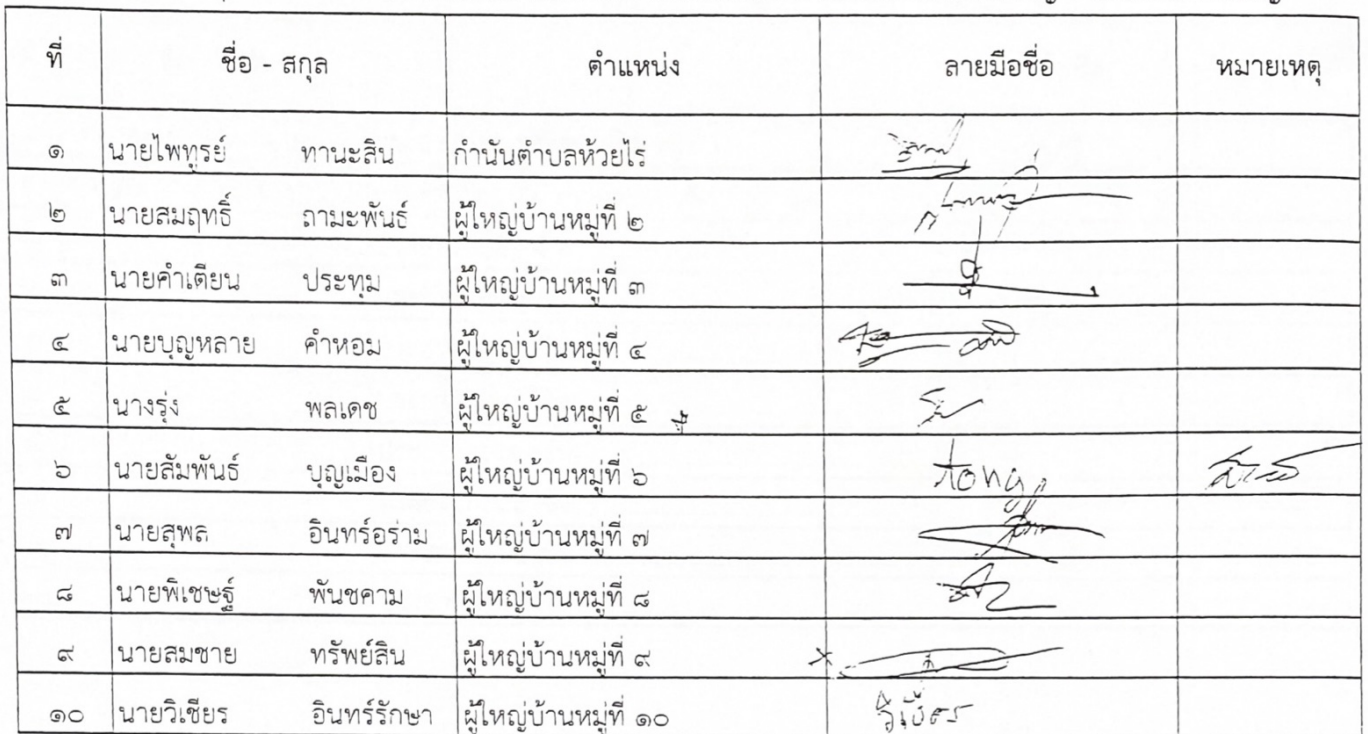 ที่ ชื่อ - สกุล ตำแหน่ง ลายมือชื่อ หมายเหตุ
๑ นายไพฑูรย์ ทานะสิน กำนันตำบลห้วยไร่
๒ นายสมฤทธิ์ ถามะพันธ์ ผู้ใหญ่บ้านหมู่ที่ ๒
๓ นายคำเตียน ประทุม ผู้ใหญ่บ้านหมู่ที่ ๓
๔ นายบุญหลาย คำหอม ผู้ใหญ่บ้านหมู่ที่ ๔
๕ นางรุ่ง พลเดช ผู้ใหญ่บ้านหมู่ที่ ๕
๖ นายสัมพันธ์ บุญเมือง ผู้ใหญ่บ้านหมู่ที่ ๖ tong
๗ นายสุพล อินทร์อร่าม ผู้ใหญ่บ้านหมู่ที่ ๗
๘ นายพิเชษฐ์ พันชคาม ผู้ใหญ่บ้านหมู่ที่ ๘
๙ นายสมชาย ทรัพย์สิน ผู้ใหญ่บ้านหมู่ที่ ๙ x
๑๐ นายวิเชียร อินทร์รักษา ผู้ใหญ่บ้านหมู่ที่ ๑๐ วิเชียร